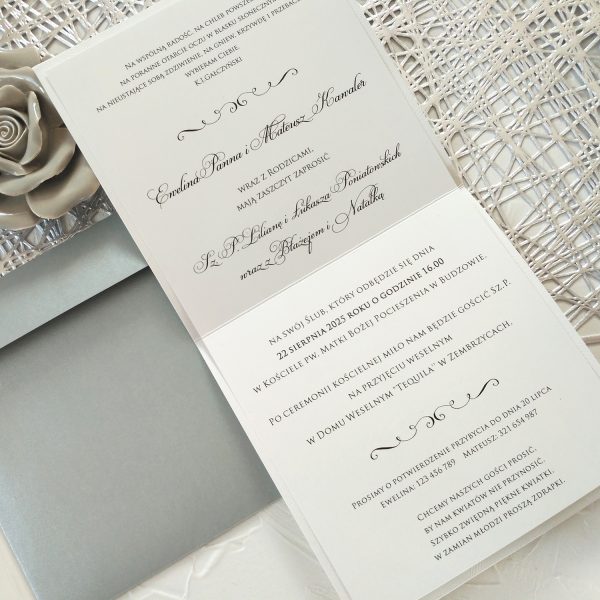 NA WSPÓLNĄ RADOŚĆ, NA CHLEB POWSZE
NA PORANNE OTARCIE OCZU W BLASKU SŁONECZNYM
NA NIEUSTAJĄCE SOBĄ ZDZIWIENIE, NA GNIEW, KRZYWDĘ I PRZEBAC
WYBIERAM CIEBIE
K.I.GAŁCZYŃSKI
Ewelina Panna i Mateusz Kawaler
WRAZ Z RODZICAMI,
MAJĄ ZASZCZYT ZAPROSIĆ
Sz. P. Lilianę i Łukasza Poniatowskich
wraz z Błażejem i Natalką
NA SWÓJ ŚLUB, KTÓRY ODBĘDZIE SIĘ DNIA
22 SIERPNIA 2025 ROKU O GODZINIE 16.00
W KOŚCIELE PW. MATKI BOŻEJ POCIESZENIA W BUDZOWIE.
PO CEREMONII KOŚCIELNEJ MIŁO NAM BĘDZIE GOŚCIĆ SZ.P.
NA PRZYJĘCIU WESELNYM
W DOMU WESELNYM "TEQUILA" W ZEMBRZYCACH.
PROSIMY O POTWIERDZENIE PRZYBYCIA DO DNIA 20 LIPCA
EWELINA: 123 456 789 MATEUSZ: 321 654 987
CHCEMY NASZYCH GOŚCI PROSIĆ,
BY NAM KWIATÓW NIE PRZYNOSIĆ.
SZYBKO ZWIĘDNĄ PIĘKNE KWIATKI,
W ZAMIAN MŁODZI PROSZĄ ZDRAPKI.